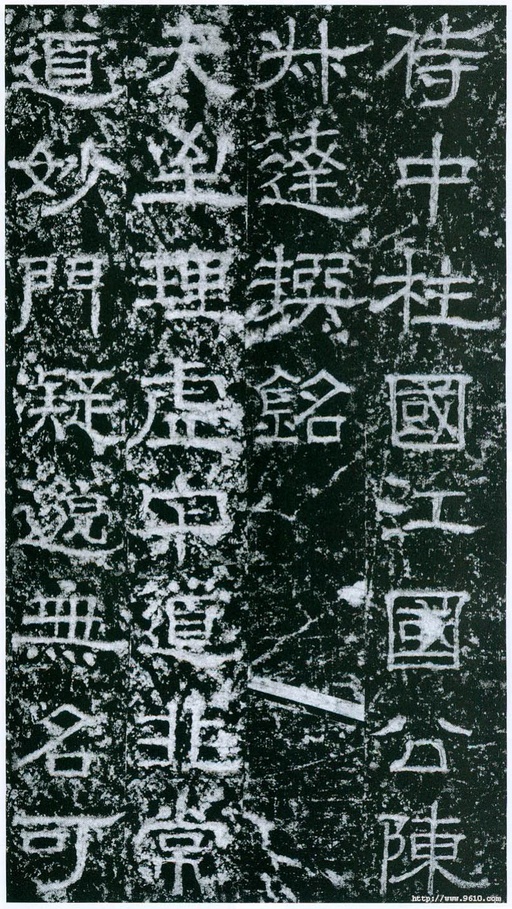 侍中柱國江國公陳
叔達撰銘
夫至理虛寂道非常
道妙門凝邈無名可
http://www.9610.com